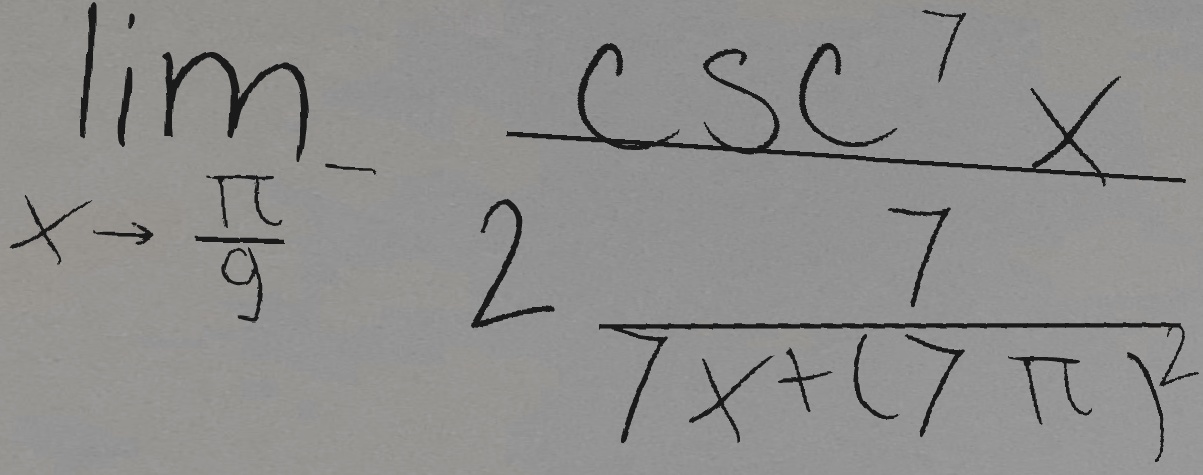 \lim_{x \to \frac{\pi}{9}^-} \frac{\csc^7 x}{2 \frac{7}{7x + (7\pi)^2}}